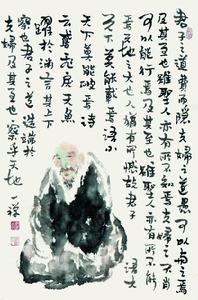 君子之道費而隱夫婦之愚可以與知焉
及其至也雖聖人亦有所不知焉夫婦之不肖
可以能行焉及其至也雖聖人亦有所不能
焉天地之大也人猶有所憾故君子語大
天下莫能載焉語小
天下莫能破焉詩
云鳶飛戾天魚
躍於淵言其上下
察也君子之道造端於
夫婦及其至也察乎天地